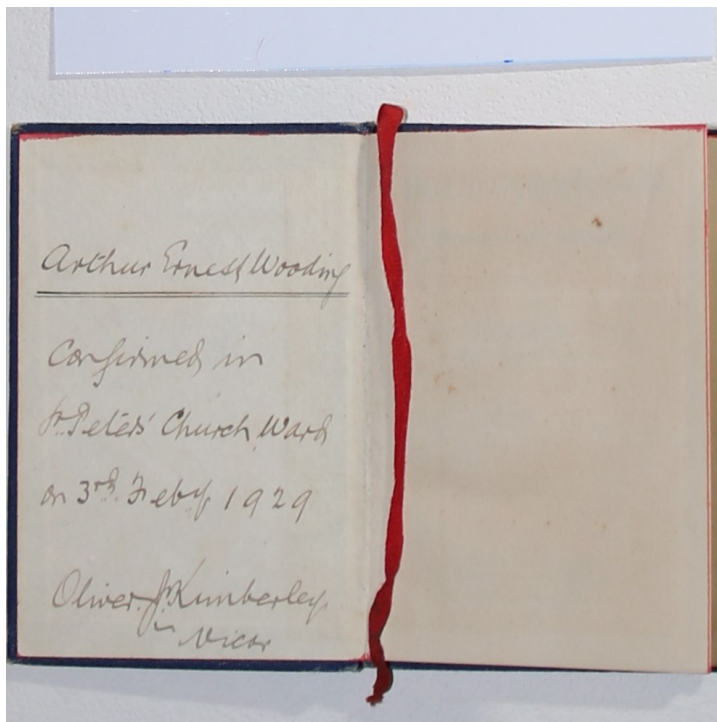 Arthur Ernest Wooding
Confirmed in
St. Peters' Church, Ward
on 3rd. Feby. 1929
Oliver. J. Kimberley
Vicar